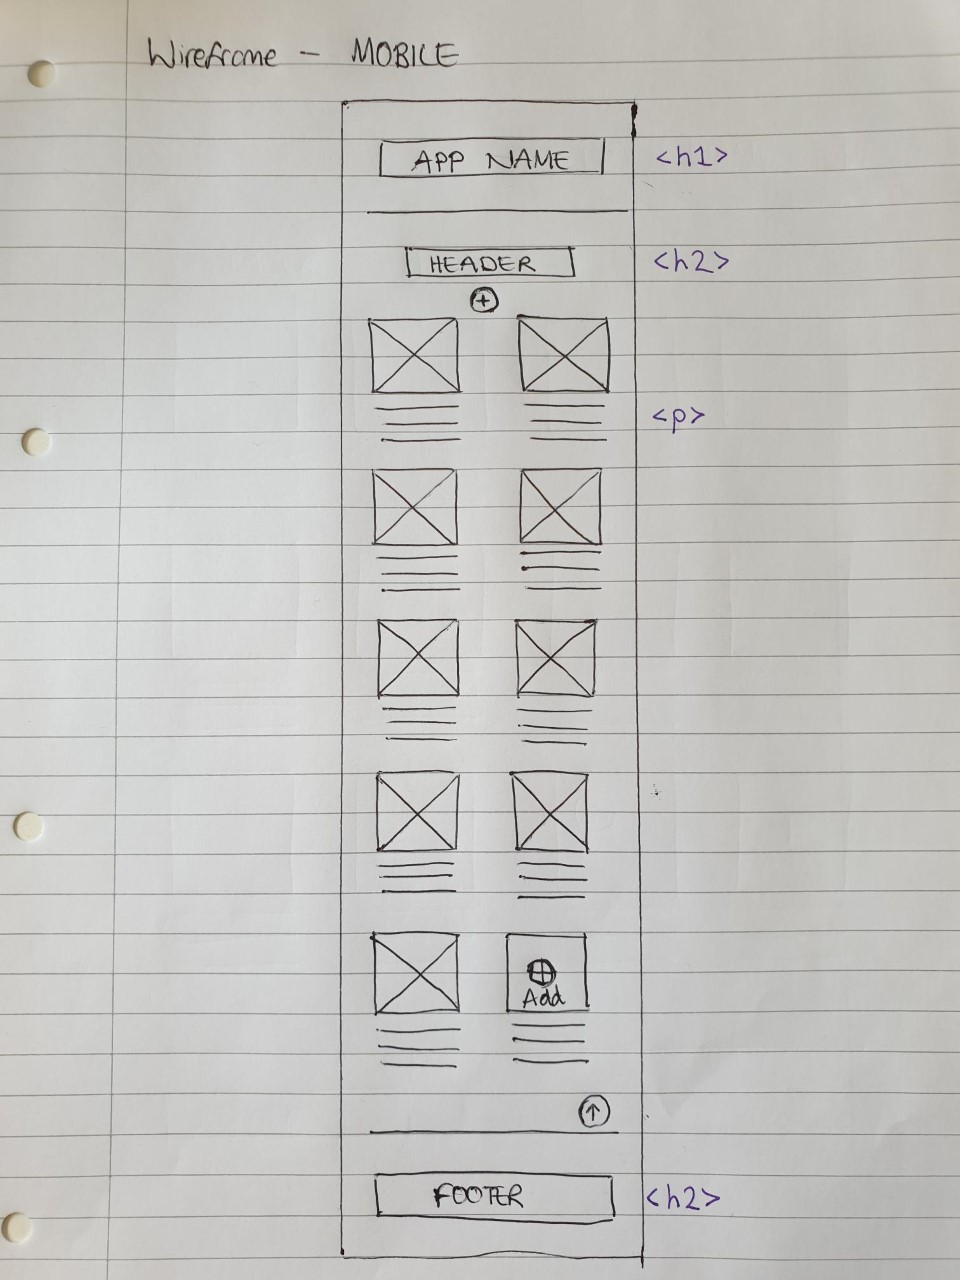 Wireframe - MOBILE
APP NAME <h1>
HEADER <h2>
+
<p>
+
Add
↑
FOOTER <h2>